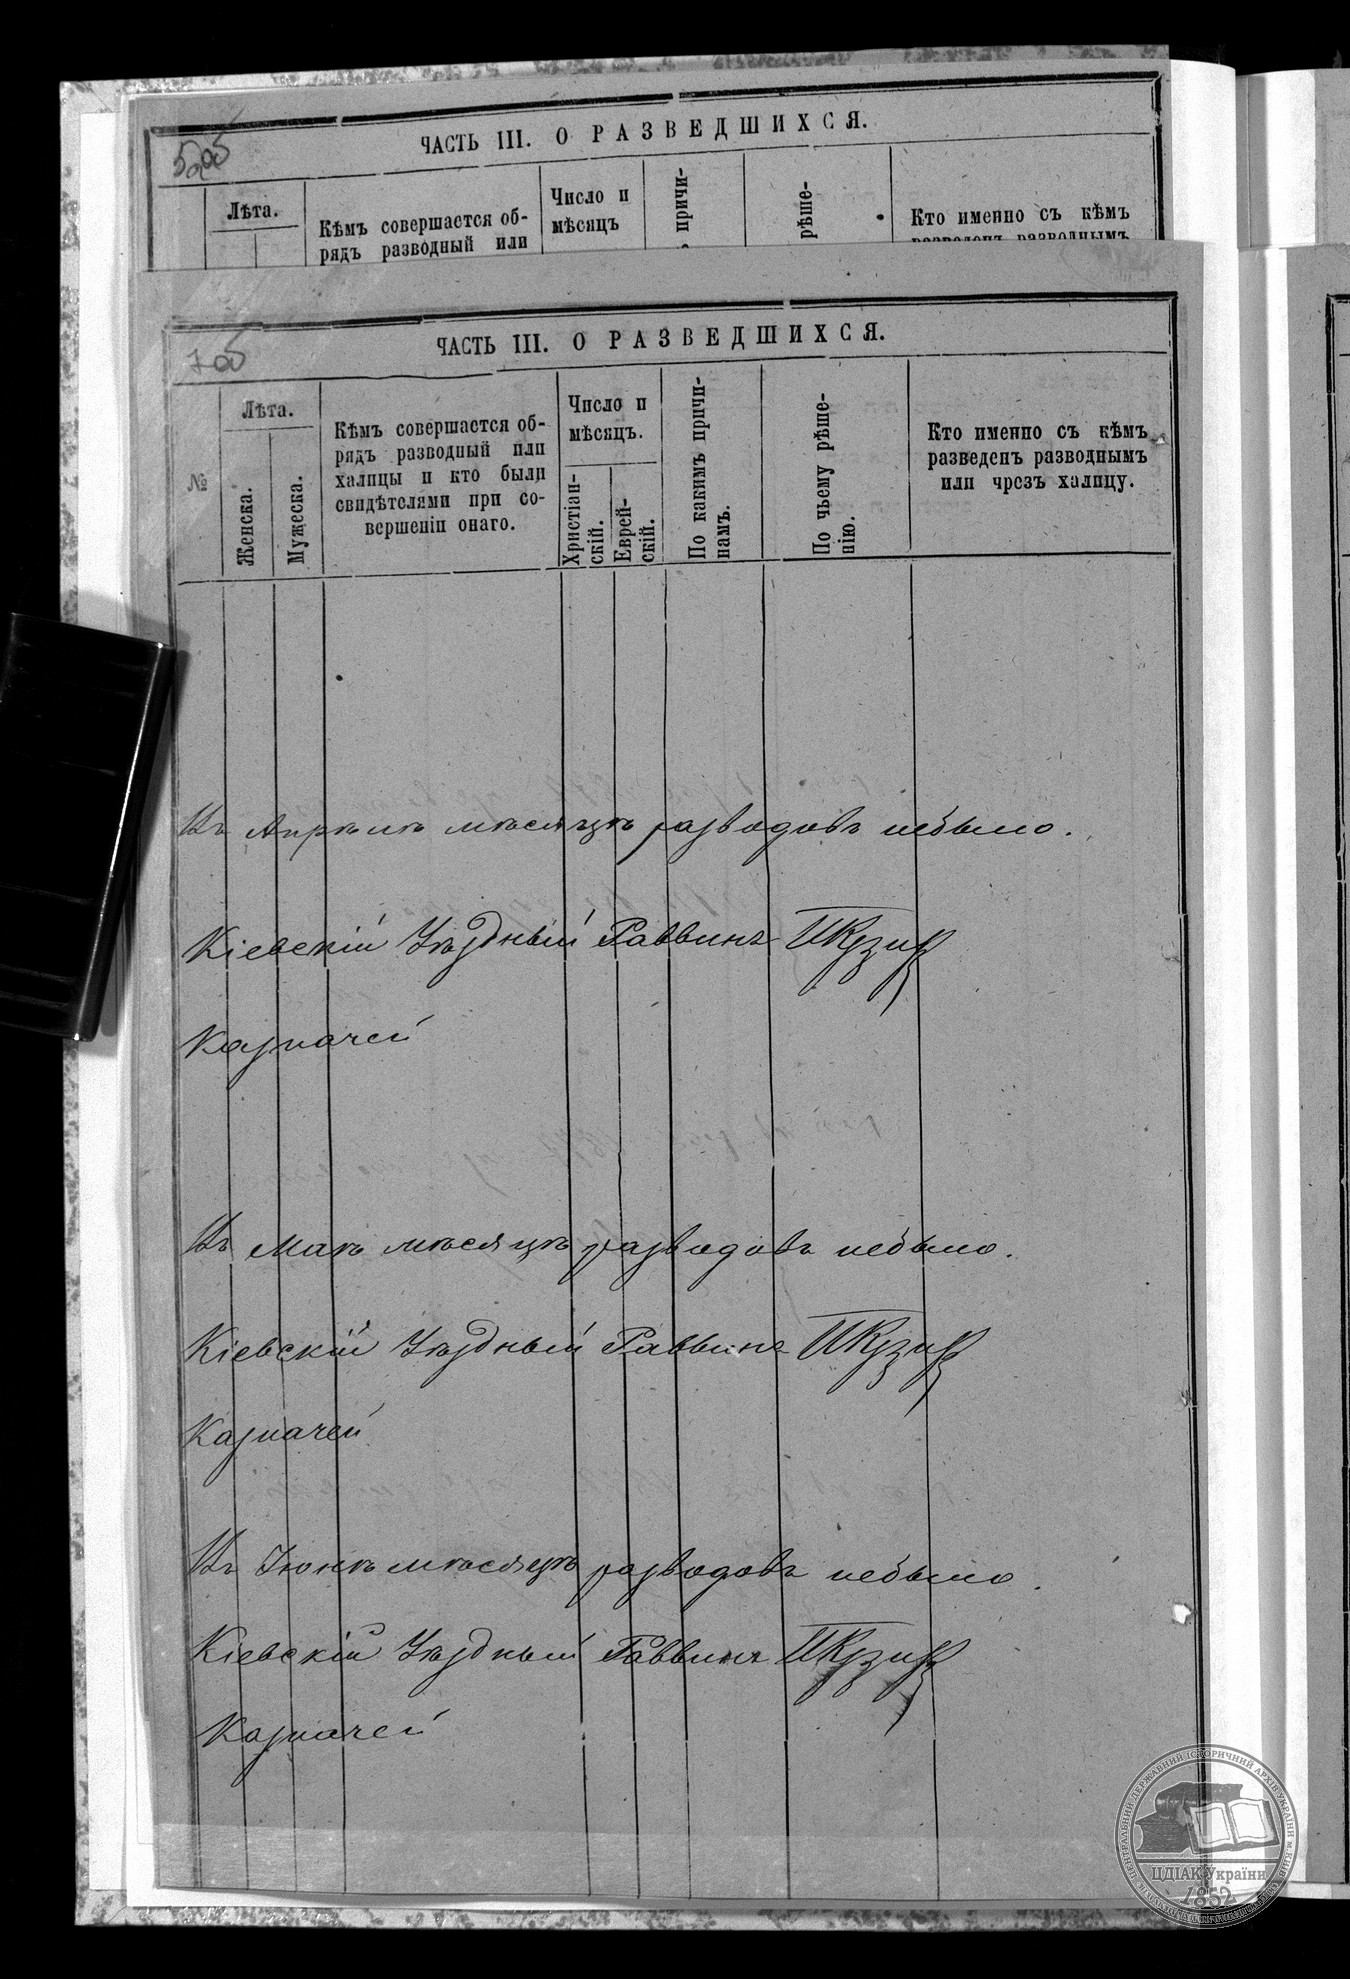 ЧАСТЬ III. О РАЗВЕДШИХСЯ.
Лѣта.
Кѣмъ совершается об-
рядъ разводный или
Число и
мѣсяцъ
причи-
рѣше-
Кто именно съ кѣмъ
разведенъ разводнымъ
ЧАСТЬ III. О РАЗВЕДШИХСЯ.
№
Лѣта.
Женска.
Мужеска.
Кѣмъ совершается об-
рядъ разводный или
халицы и кто были
свидѣтелями при со-
вершеніи онаго.
Число и
мѣсяцъ.
Христіан-
скій.
Еврей-
скій.
По какимъ причи-
намъ.
По чьему рѣше-
нію.
Кто именно съ кѣмъ
разведенъ разводнымъ
или чрезъ халицу.
Въ Апрѣлѣ мѣсяцѣ разводовъ небыло.
Кіевскій Уѣздный Раввинъ
Казначей
Въ Маѣ мѣсяцѣ разводовъ небыло.
Кіевскій Уѣздный Раввинъ
Казначей
Въ Іюнѣ мѣсяцѣ разводовъ небыло.
Кіевскій Уѣздный Раввинъ
Казначей
ЦЕНТРАЛЬНИЙ ДЕРЖАВНИЙ ІСТОРИЧНИЙ АРХІВ УКРАЇНИ м.КИЇВ
ЦДІАК України
1852